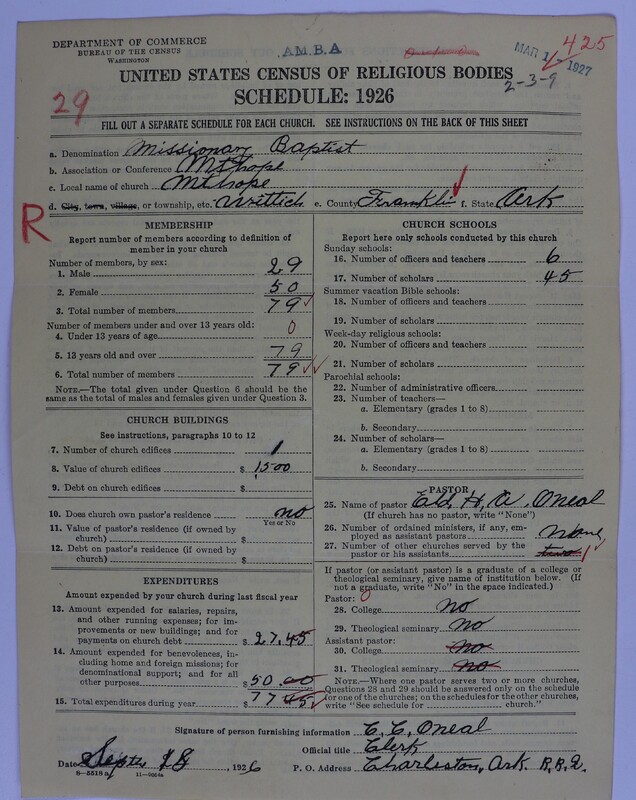 DEPARTMENT OF COMMERCE
BUREAU OF THE CENSUS
WASHINGTON
A.M.B.A
MAR 1 - 1927
425
2-3-9
UNITED STATES CENSUS OF RELIGIOUS BODIES
SCHEDULE: 1926
29
FILL OUT A SEPARATE SCHEDULE FOR EACH CHURCH. SEE INSTRUCTIONS ON THE BACK OF THIS SHEET
a. Denomination Missionary Baptist
b. Association or Conference Mt hope
c. Local name of church Mt hope
d. City, town, village, or township, etc. Wittich e. County Franklin f. State Ark
R
MEMBERSHIP
Report number of members according to definition of
member in your church
Number of members, by sex:
1. Male 29
2. Female 50
3. Total number of members 79
Number of members under and over 13 years old:
4. Under 13 years of age 0
5. 13 years old and over 79
6. Total number of members 79
NOTE.—The total given under Question 6 should be the
same as the total of males and females given under Question 3.
CHURCH BUILDINGS
See instructions, paragraphs 10 to 12
7. Number of church edifices 1
8. Value of church edifices $ 1500
9. Debt on church edifices $
10. Does church own pastor's residence no
Yes or No
11. Value of pastor's residence (if owned by
church) $
12. Debt on pastor's residence (if owned by
church) $
EXPENDITURES
Amount expended by your church during last fiscal year
13. Amount expended for salaries, repairs,
and other running expenses; for im-
provements or new buildings; and for
payments on church debt $ 27.45
14. Amount expended for benevolences,
including home and foreign missions; for
denominational support; and for all
other purposes $ 50.00
15. Total expenditures during year $ 77 45
CHURCH SCHOOLS
Report here only schools conducted by this church
Sunday schools:
16. Number of officers and teachers 6
17. Number of scholars 45
Summer vacation Bible schools:
18. Number of officers and teachers
19. Number of scholars
Week-day religious schools:
20. Number of officers and teachers
21. Number of scholars
Parochial schools:
22. Number of administrative officers
23. Number of teachers—
a. Elementary (grades 1 to 8)
b. Secondary
24. Number of scholars—
a. Elementary (grades 1 to 8)
b. Secondary
PASTOR
25. Name of pastor Eld, H. A. Oneal
(If church has no pastor, write "None")
26. Number of ordained ministers, if any, em-
ployed as assistant pastors none
27. Number of other churches served by the
pastor or his assistants two 1
If pastor (or assistant pastor) is a graduate of a college or
theological seminary, give name of institution below. (If
not a graduate, write "No" in the space indicated.)
Pastor: 0
28. College no
29. Theological seminary no
Assistant pastor:
30. College no
31. Theological seminary no
NOTE.—Where one pastor serves two or more churches,
Questions 28 and 29 should be answered only on the schedule
for one of the churches; on the schedules for the other churches,
write "See schedule for church."
Signature of person furnishing information C. C. Oneal
Official title Clerk
Date Sept, 18, 1926 P. O. Address Charleston, Ark. R.R.2.
8—5518a 11—9054a